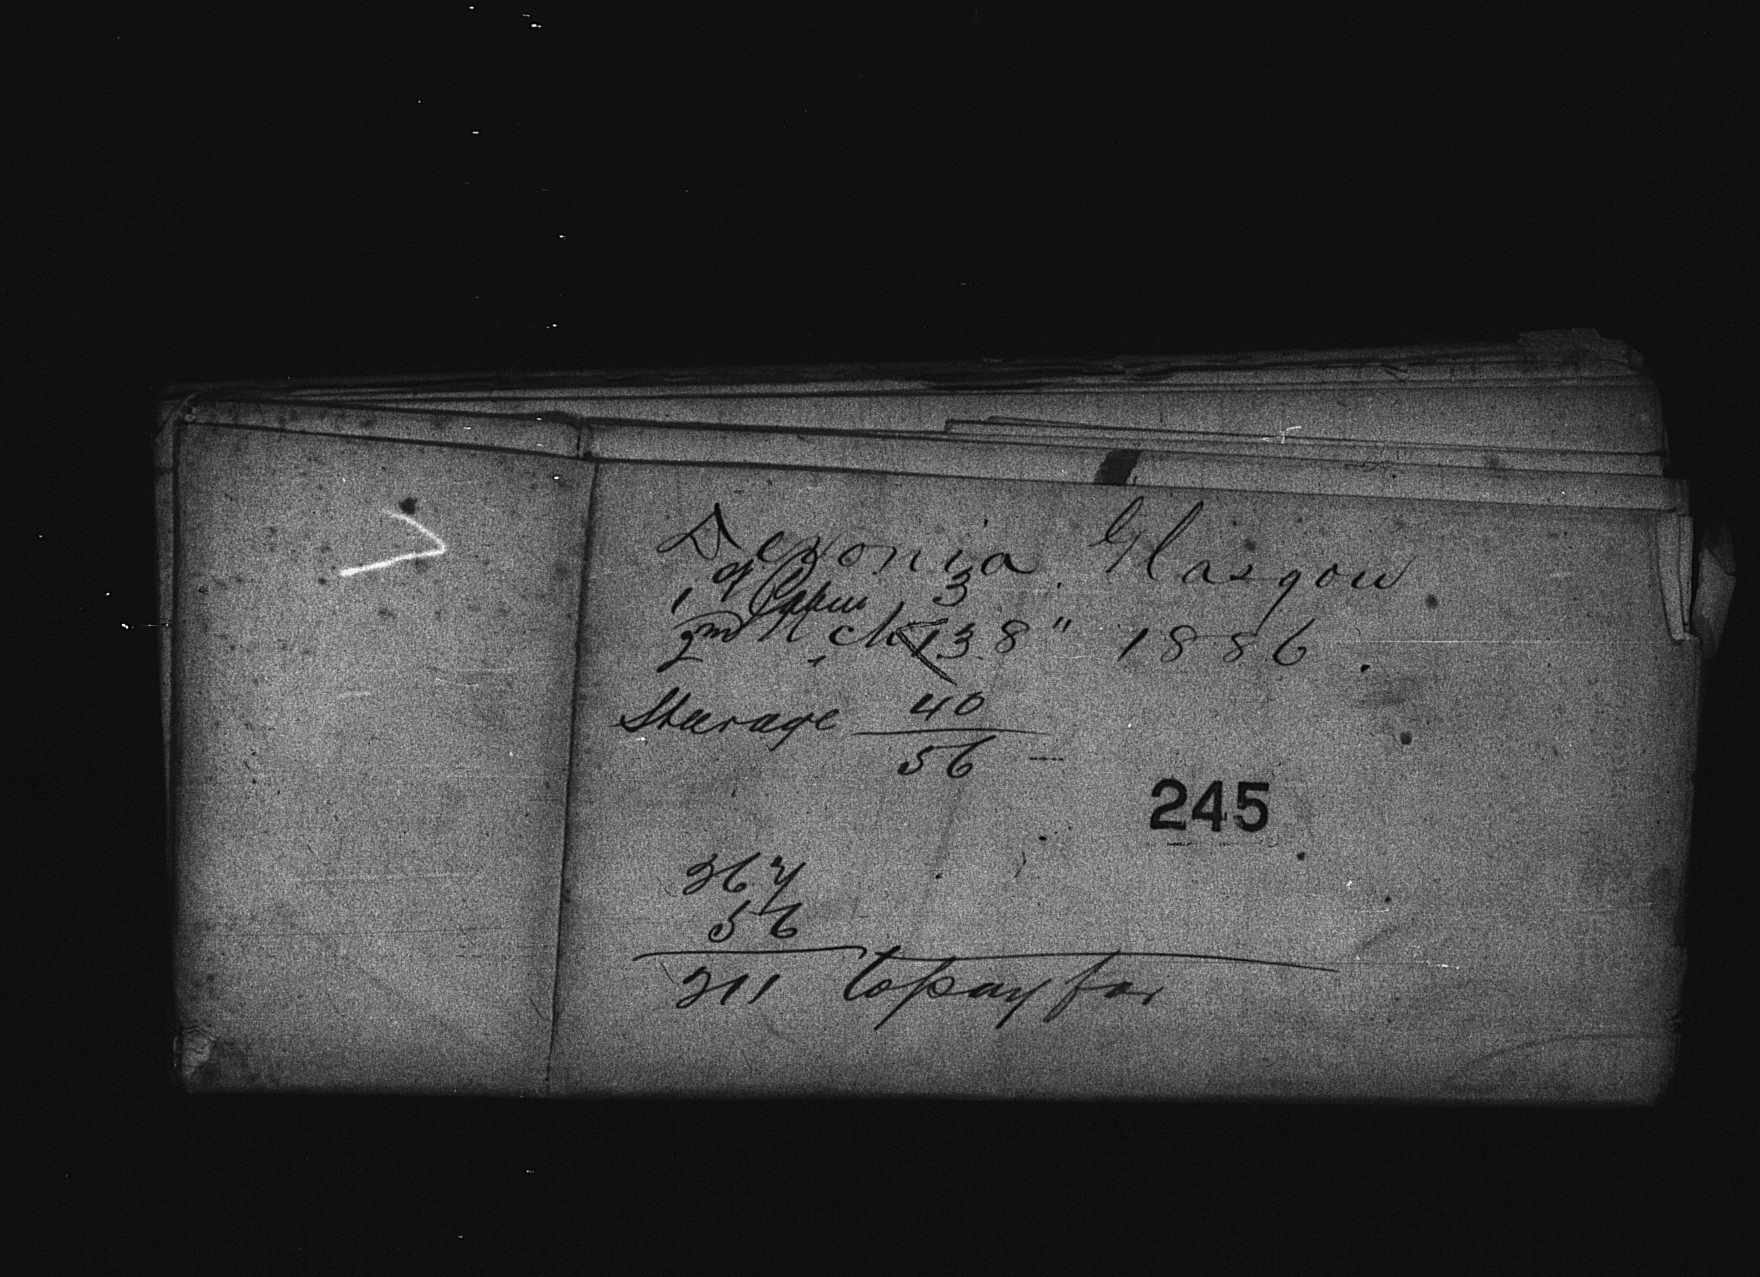 Devonia. Glasgow.
1 of Cabin 3
2nd " 13
Mch 8" 1886.
Steerage 40
56
245
367
56
311 to pay for